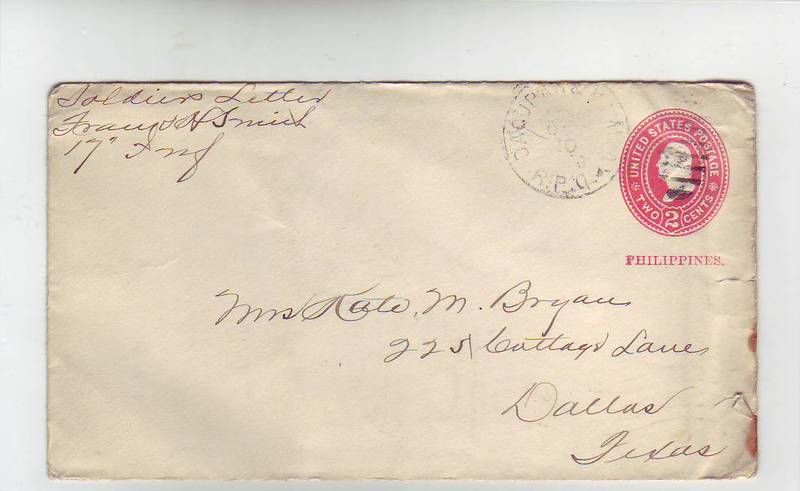 Soldiers Letter
Francis H Smith
17" Inf
DAGUPAN &
R.P.O.
UNITED STATES POSTAGE
TWO 2 CENTS
PHILIPPINES.
Mrs Kate M. Bryan
225 Cottage Lane
Dallas
Texas